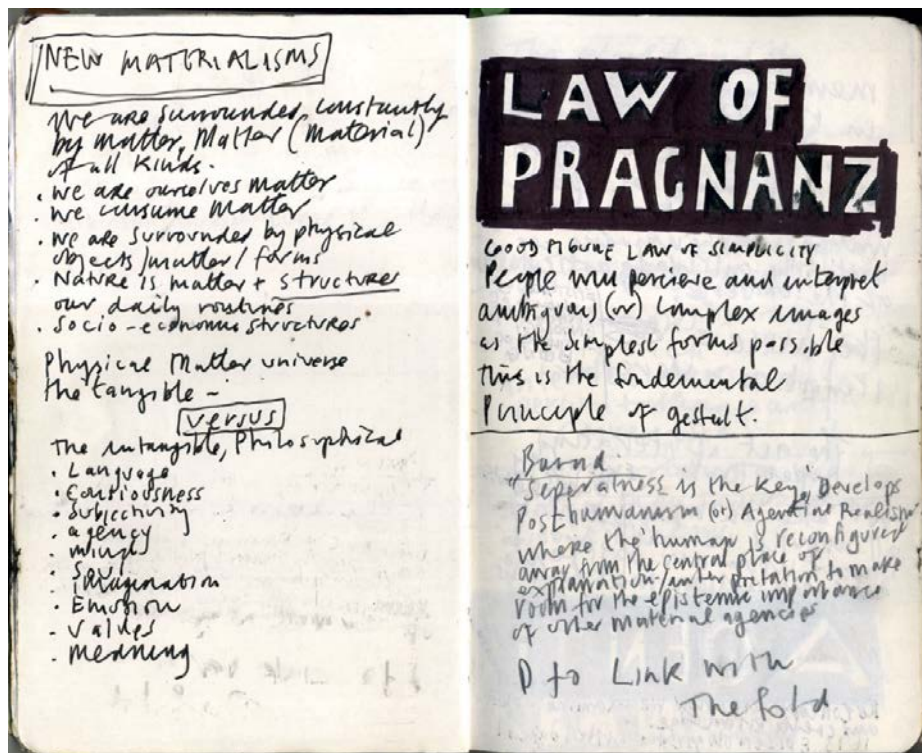 NEW MATERIALISMS
We are surrounded constantly
by matter, Matter (material)
of all kinds.
. we are ourselves matter
. we consume Matter
. we are surrounded by physical
objects/matter/forms
. Nature is matter + structures
our daily routines
. Socio-economic structures
Physical Matter universe
the tangible -
versus
The intangible, Philosophical
. Language
. Contiousness
. Subjectivity
. agency
. mind
. Soul
. imagination
. Emotion
- values
. Meaning
LAW OF
PRAGNANZ
GOOD FIGURE LAW OF SIMPLICITY
People will percieve and interpret
ambiguous (or) complex images
as the simplest forms possible
this is the fundemental
Principle of gestalt.
Barad
"Seperatness is the key, Develops
Posthumanism (or) Agential Realism
where the 'human' is reconfigured
away from the central place of
explanation/interpretation to make
room for the epistemic importance
of other material agencies
D to Link with
The fold